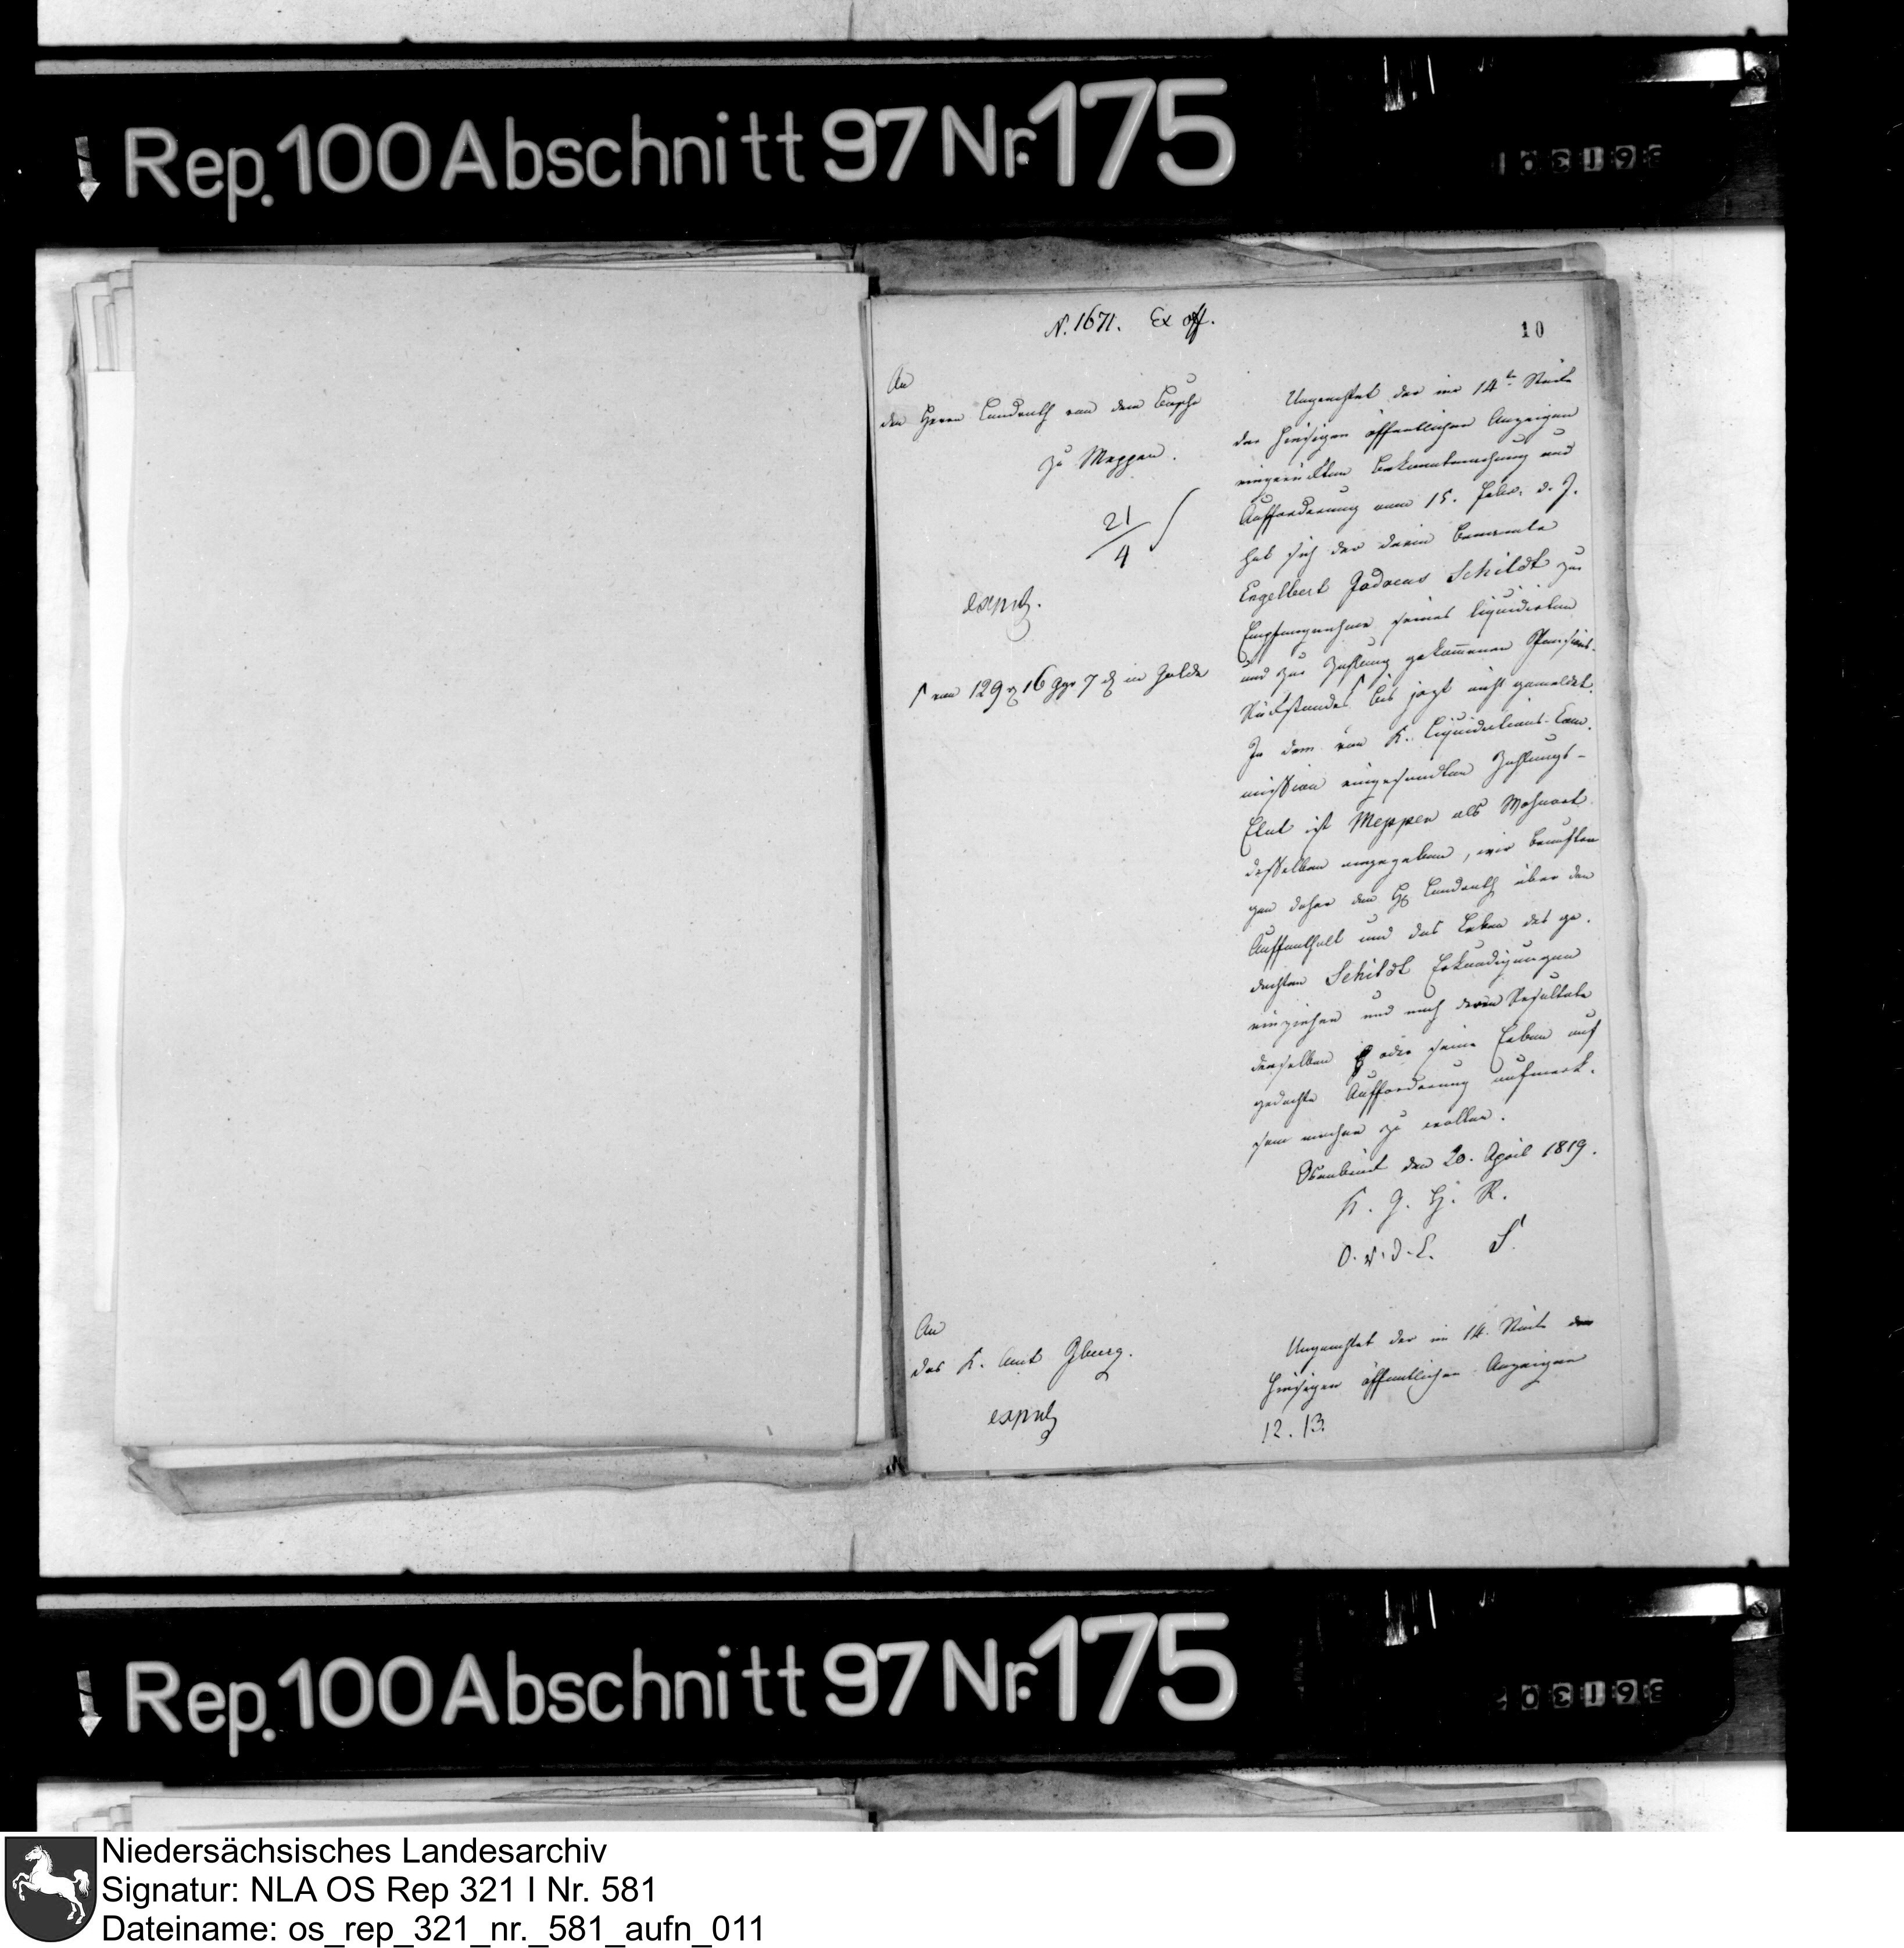 Rep. 100 Abschnitt 97 Nr. 175
N. 1671. Ex off.
10
An
den Herrn Landrath von dem Bussche
zu Meppen.
21/4
exped.
von 129 16 Ggr 7 in Golde
Ungeachtet der im 14ten Stücke
der hiesigen öffentlichen Anzeigen
eingerückten Bekanntmachung und
Aufforderung vom 15. Febr. d. J.
hat sich der darin benannte
Engelbert Jodocus Schildt zur
Empfangnahme seines liquidirten
und zur Zahlung gekommenen Pensions-
Rückstandes bis jezt nicht gemeldet.
In dem von K. Liquidations-Com-
mission eingesandten Zahlungs-
Etat ist Meppen als Wohnort
desselben angegeben, wir beauftra
gen daher den H Landrath über den
Auffenthalt und das Leben des ge-
dachten Schildt Erkundigungen
einziehen und nach deren Resultate
denselben oder seine Erben auf
gedachte Aufforderung aufmerk-
sam machen zu wollen.
Osnabrück den 20. April 1819.
K. G. H. R.
O. v. d. L. S.
An
das K. Amt Iburg.
exped.
Ungeachtet der im 14. Stücke der
hiesigen öffentlichen Anzeigen
12. 13.
Rep. 100 Abschnitt 97 Nr. 175
Niedersächsisches Landesarchiv
Signatur: NLA OS Rep 321 I Nr. 581
Dateiname: os_rep_321_nr._581_aufn_011